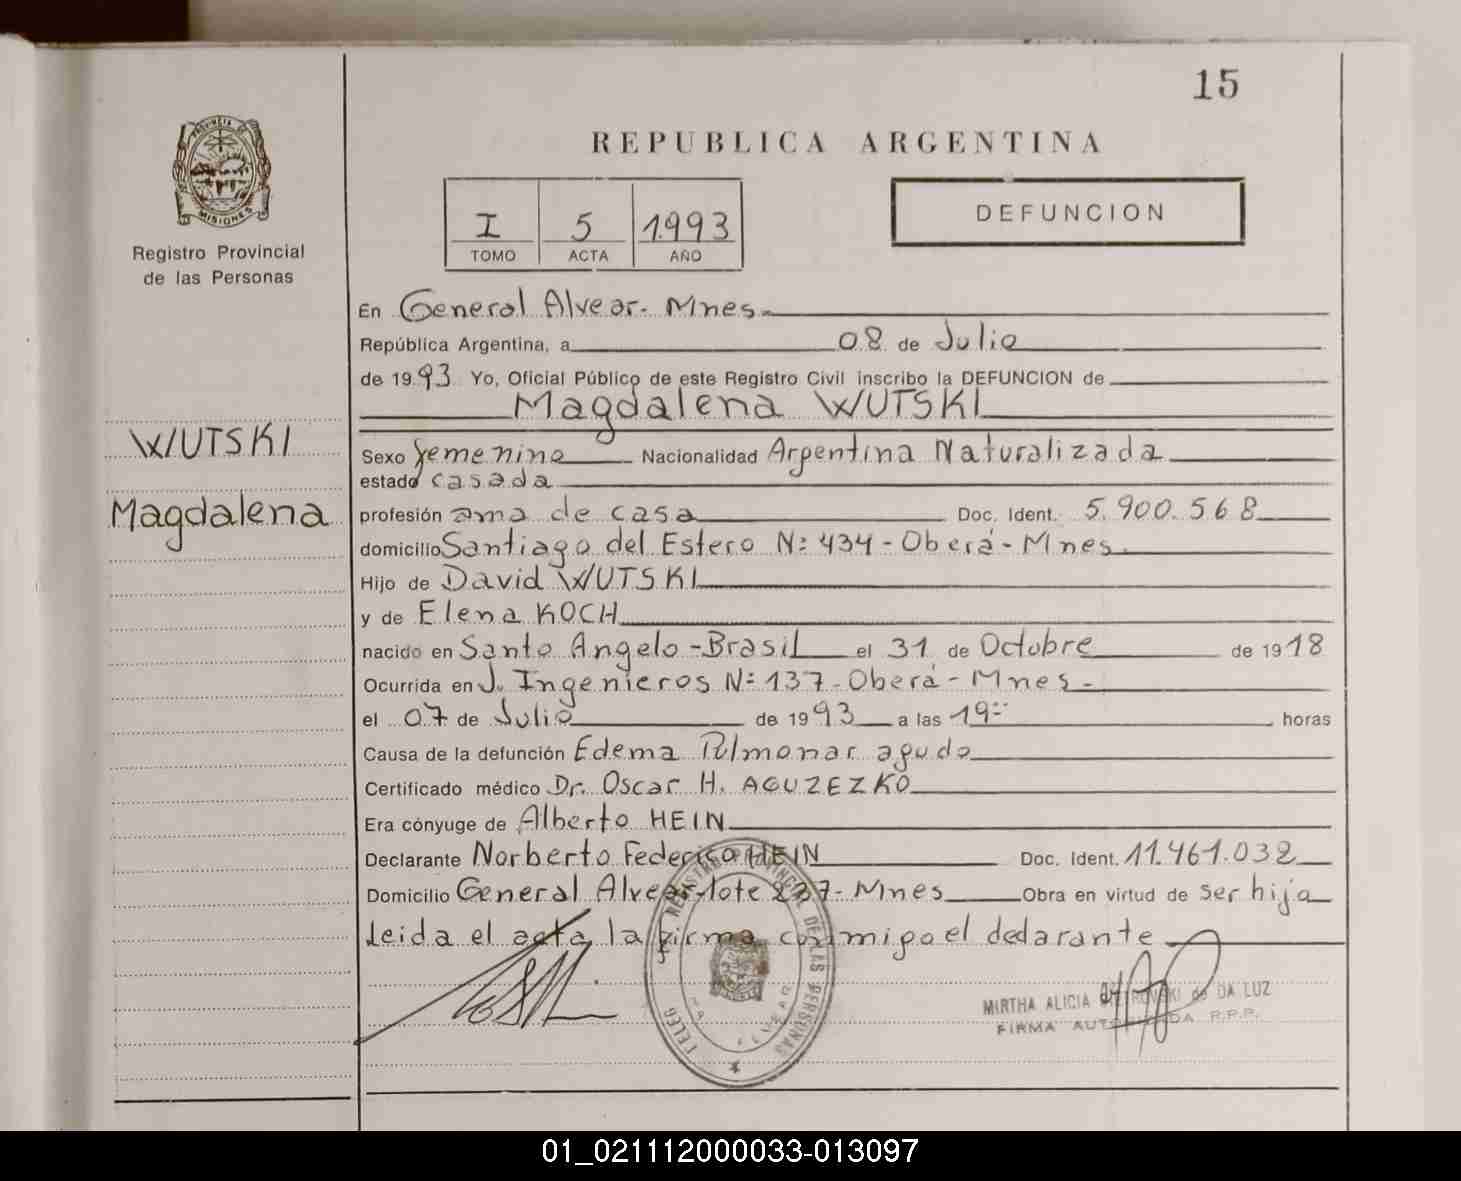 15
PROVINCIA DE
MISIONES
Registro Provincial
de las Personas
WUTSKI
Magdalena
REPUBLICA ARGENTINA
I 5 1993
TOMO ACTA AÑO
DEFUNCION
En General Alvear. Mnes.
República Argentina, a 08 de Julio
de 1993 Yo, Oficial Público de este Registro Civil inscribo la DEFUNCION de
Magdalena WUTSKI
Sexo femenino Nacionalidad Argentina Naturalizada
estado casada
profesión ama de casa Doc. Ident. 5.900.568
domicilio Santiago del Estero Nº 434 - Oberá - Mnes.
Hijo de David WUTSKI
y de Elena KOCH
nacido en Santo Angelo - Brasil el 31 de Octubre de 1918
Ocurrida en J. Ingenieros Nº 137 - Oberá - Mnes -
el 07 de Julio de 1993 a las 19 horas
Causa de la defunción Edema Pulmonar agudo
Certificado médico Dr. Oscar H. AGUZEZKO
Era cónyuge de Alberto HEIN
Declarante Norberto Federico HEIN Doc. Ident. 11.461.032
Domicilio General Alvear - lote 237 - Mnes Obra en virtud de ser hija
Leida el acta la firma conmigo el declarante
REGISTRO PROVINCIAL DE LAS PERSONAS
MIRTHA ALICIA DA LUZ
FIRMA AUTORIZADA R.P.P.
01_021112000033-013097